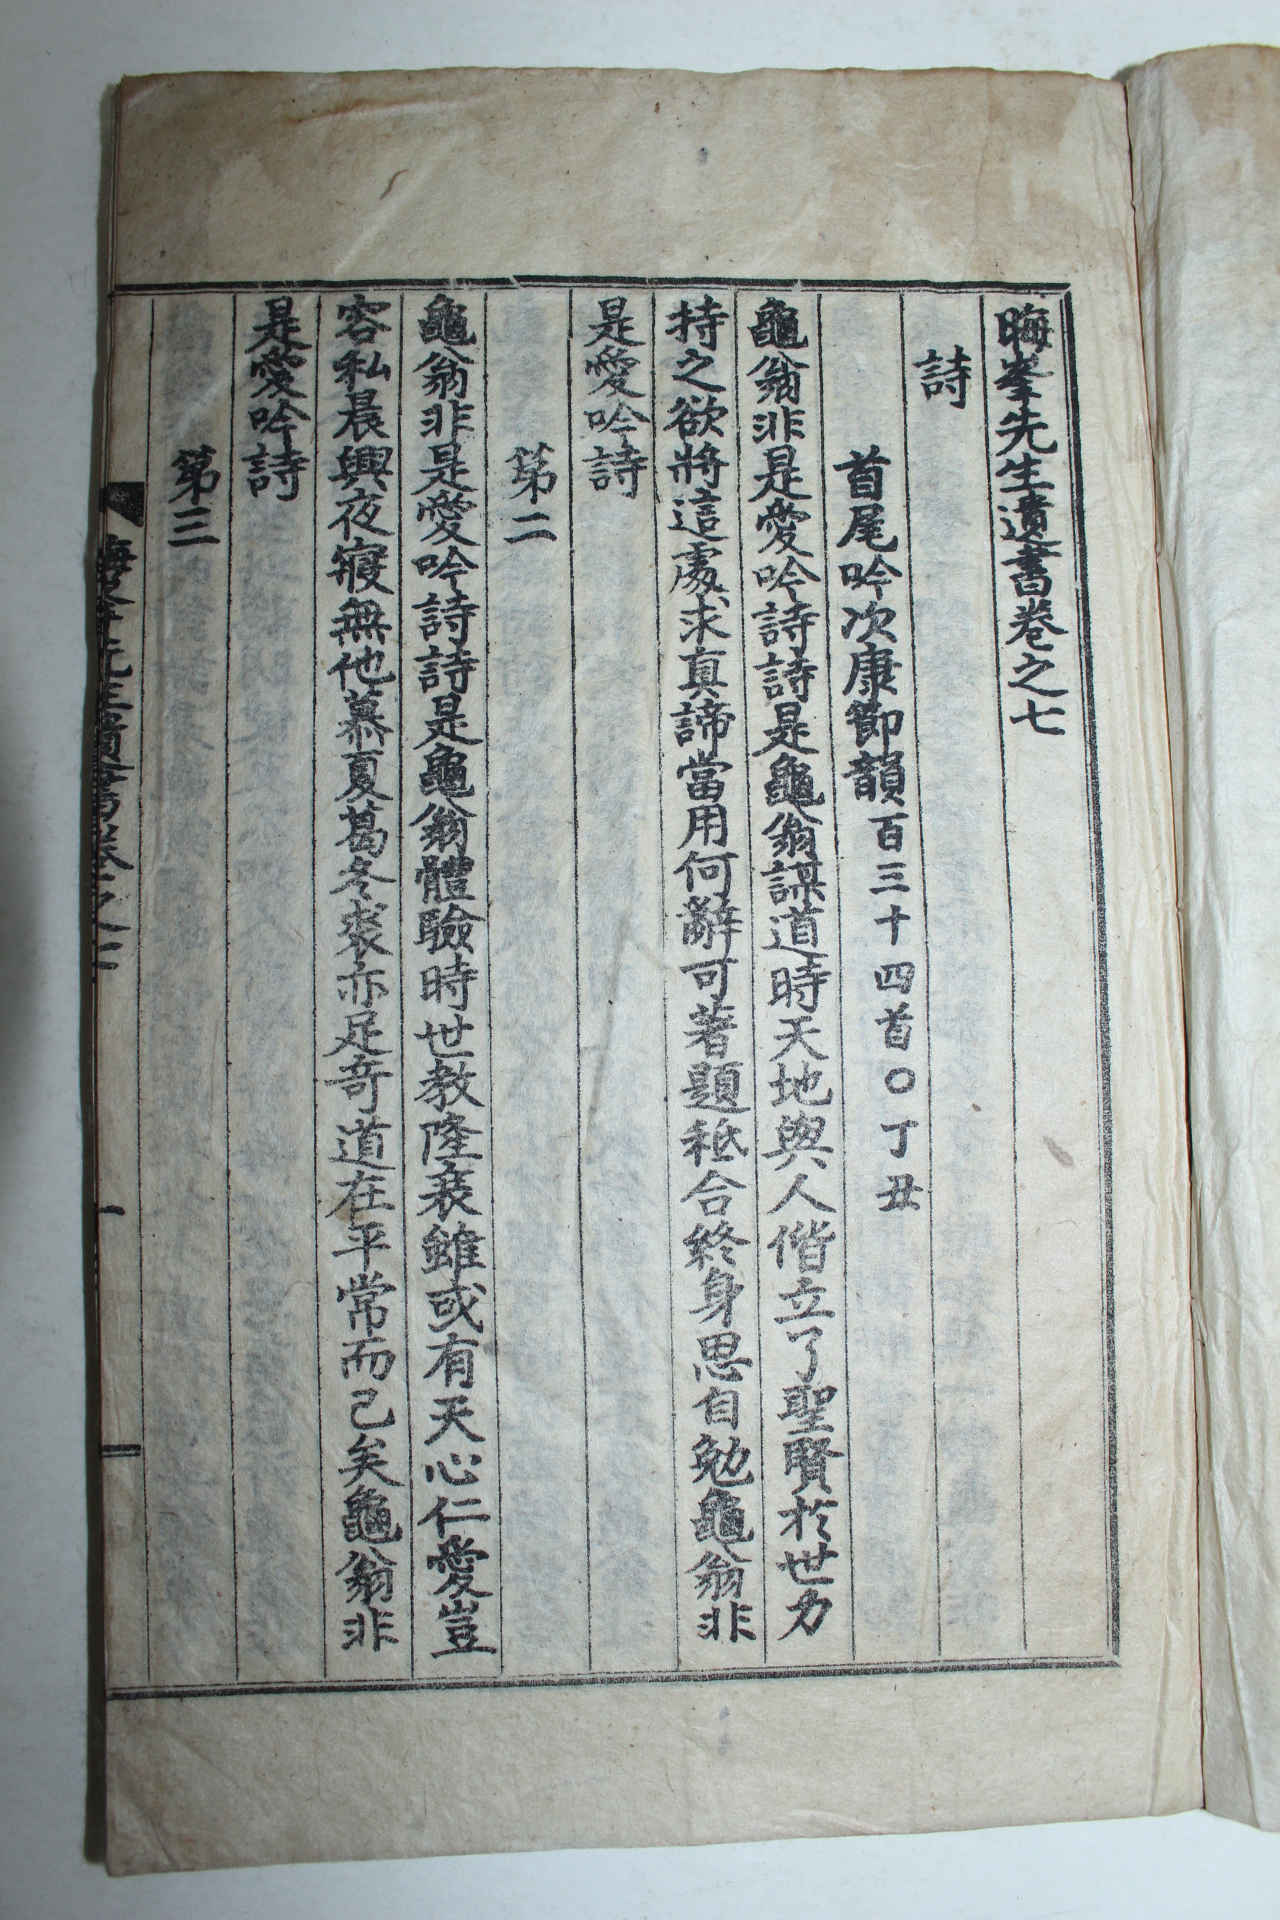 晦峯先生遺書卷之七
詩
首尾吟次康節韻百三十四首○丁丑
龜翁非是愛吟詩詩是龜翁謀道時天地與人偕立了聖賢於世力
持之欲將這處求真諦當用何辭可著題秪合終身思自勉龜翁非
是愛吟詩
第二
龜翁非是愛吟詩詩是龜翁體驗時世教隆衰雖或有天心仁愛豈
容私晨興夜寢無他慕夏葛冬裘亦足奇道在平常而己矣龜翁非
是愛吟詩
第三
晦峯先生遺書卷之七
一